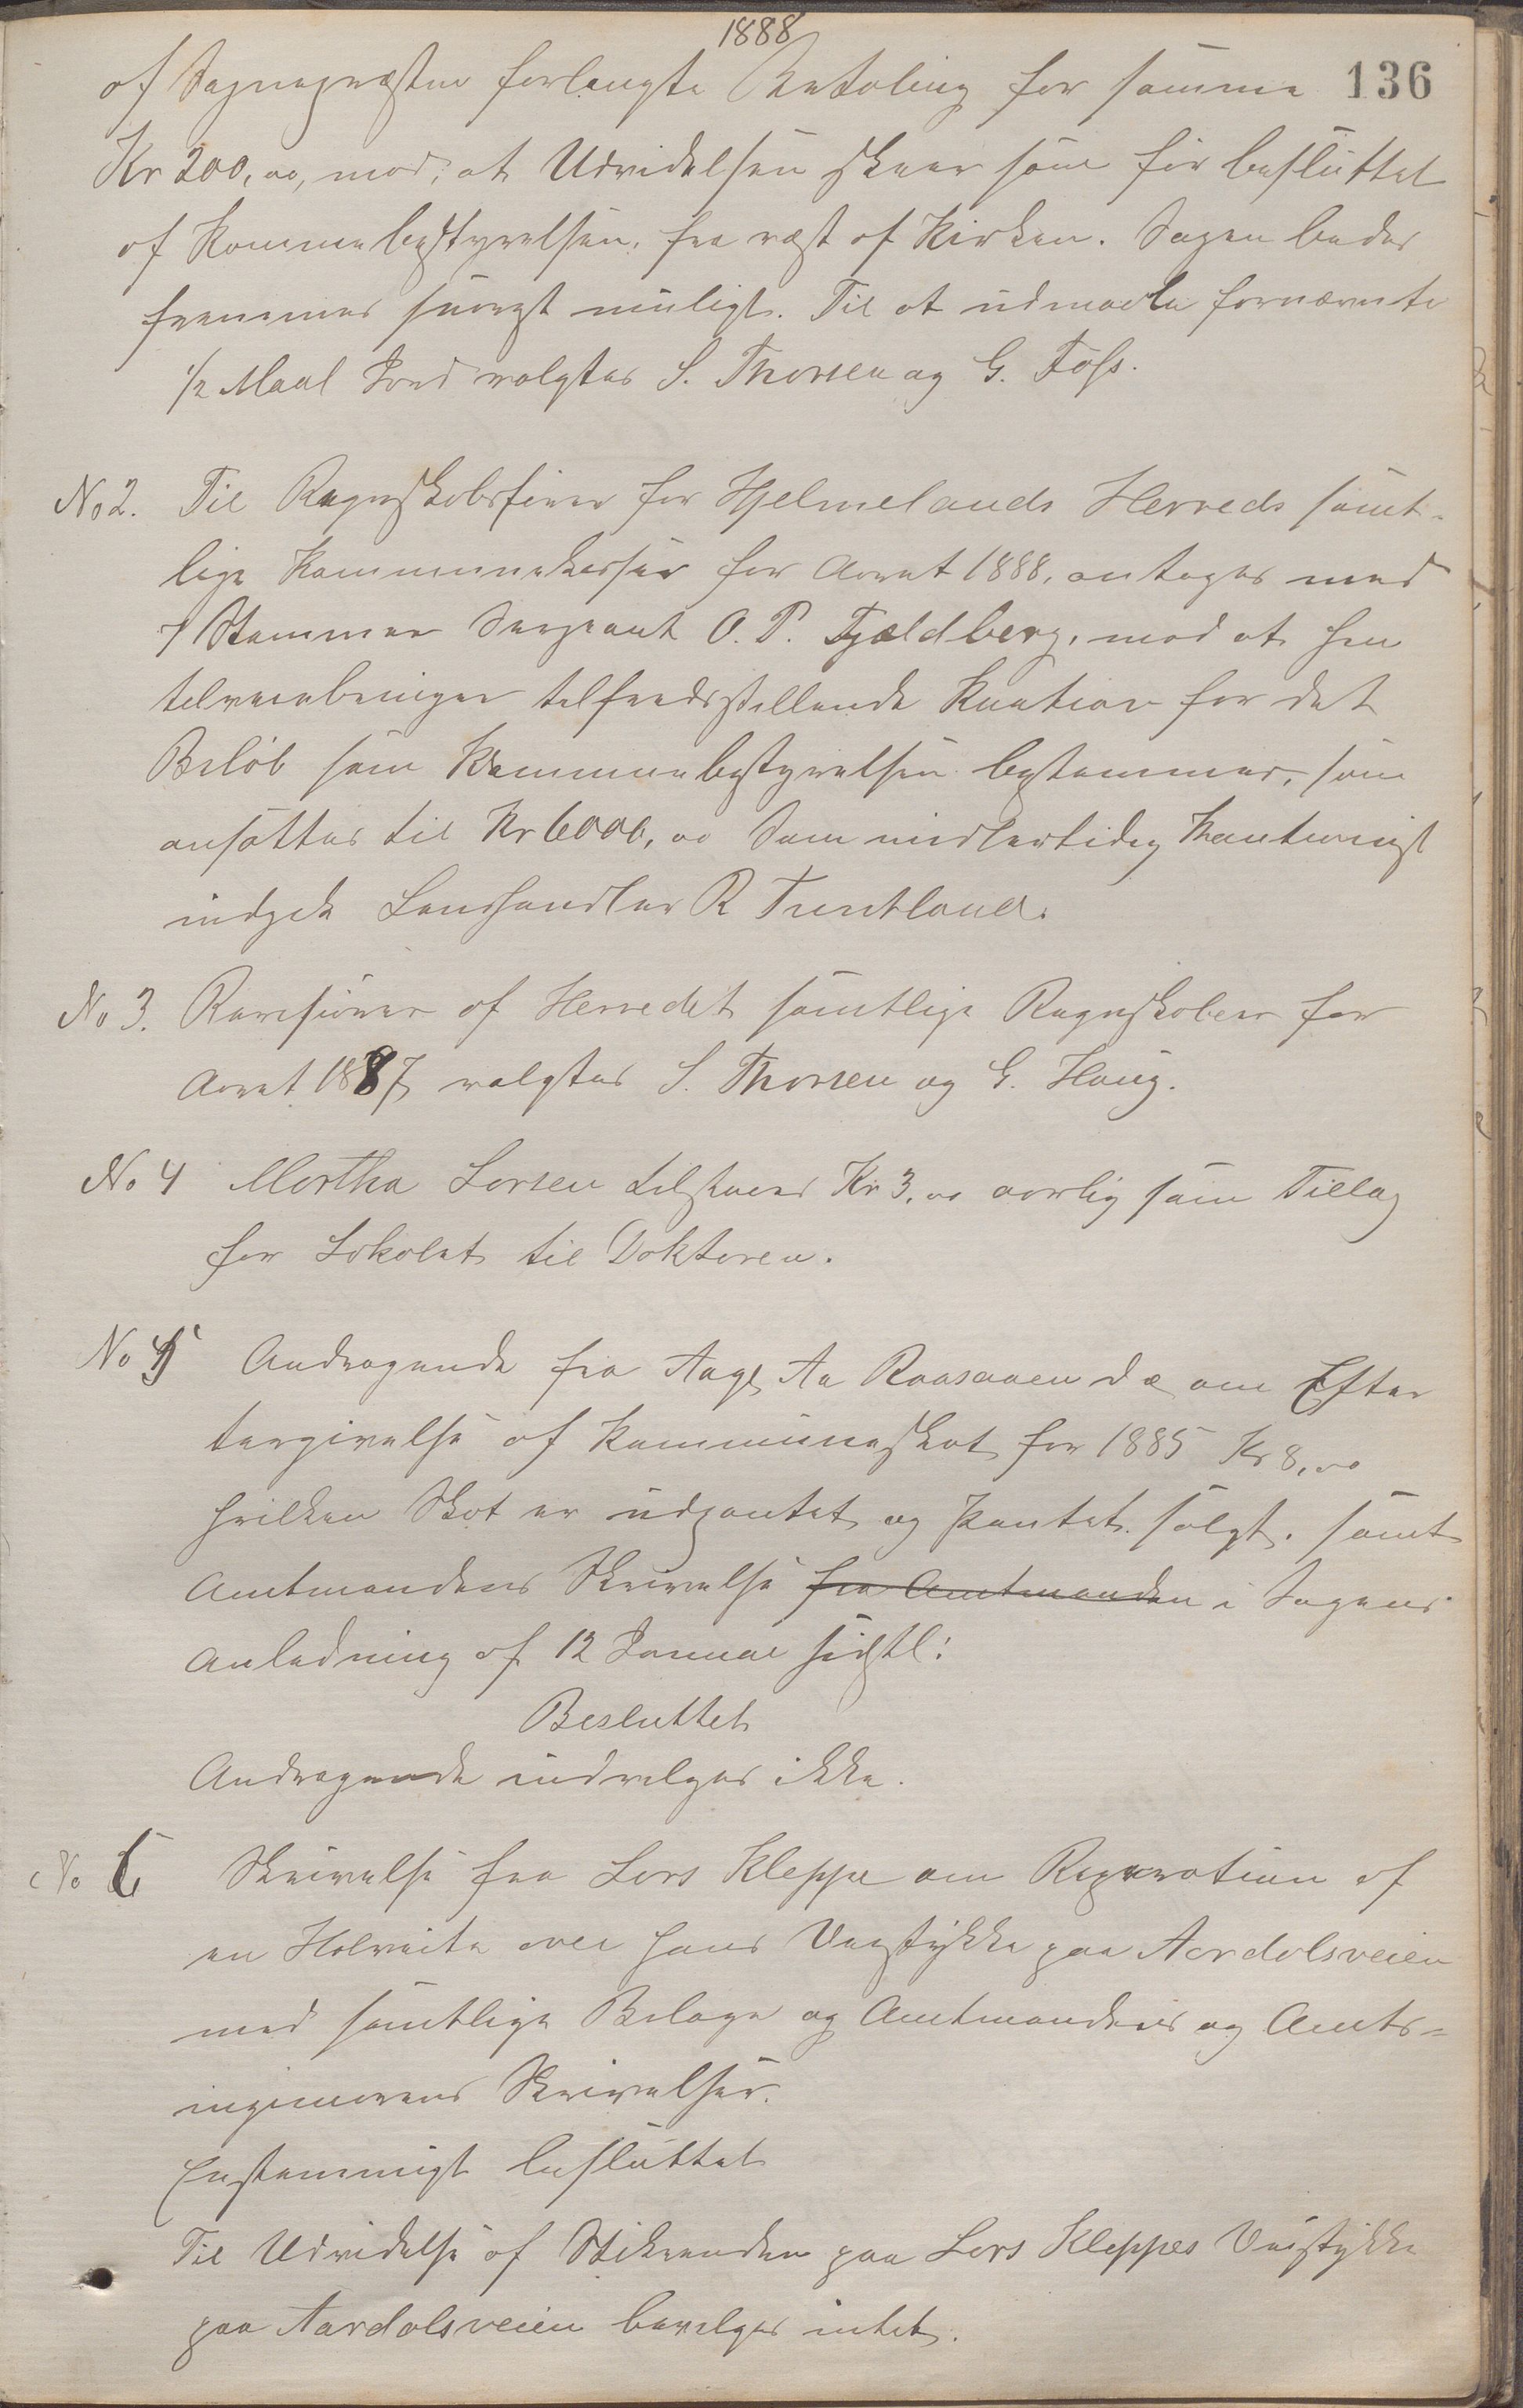 1888
136
af Sognepræsten forlangte Betaling for samme
Kr 200,00, mod, at Udvidelsen skeer som før besluttet
af Kommunebestyrelsen, fra vest af Kirken. Sagen bedes
fremmes snarest muligt. Til at udmaale fornævnte
1/2 Maal Jord valgtes S. Thorsen og G. Foss.
No 2. Til Regnskabsfører for Hjelmelands Herreds samt-
lige Kommunekasser for Aaret 1888, antages med
7 Stemmer Sergeant O. P. Fjældberg, mod at han
tilveiebringer tilfredsstillende Kaution for det
Beløb som Kommunebestyrelsen bestemmer, som
ansattes til Kr 6000,00 Som midlertidig Kautionist
indgik Landhandler R Tuntland.
No 3. Revisører af Herredets samtlige Regnskaber for
Aaret 1887, valgtes S. Thorsen og G. Haug.
No 4 Martha Larsen tilstaaes Kr 3,00 aarlig som Tillæg
for Lokalet til Doktoren.
No 5 Andragende fra Aage Aa Raasaaen d.æ. om Efter
tergivelse af Kommuneskat for 1885 Kr 8,00
hvilken Skat er udpantet og Pantet solgt, samt
Amtmandens Skrivelse fra Amtmanden i Sagens
Anledning af 12 Januar sidstl:
Besluttet
Andragende indvilges ikke.
No 6 Skrivelse fra Lars Kleppe om Reparation af
en Holveite over hans Veistykke paa Aardalsveien
med samtlige Bilage og Amtmandens og Amts-
ingeniørens Skrivelser.
Enstemmigt besluttet
Til Udvidelse af Stikrenden paa Lars Kleppes Veistykke
paa Aardalsveien bevilges intet.